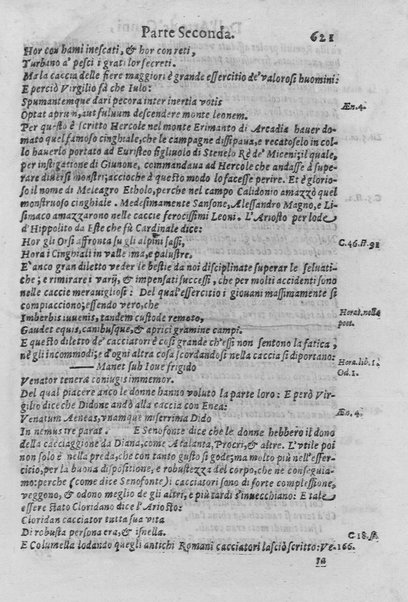 Parte Seconda. 621
Hor con hami inescati, & hor con reti,
Turbano a' pesci i grati lor secreti.
Ma la caccia delle fiere maggiori è grande essercitio de' valorosi huomini:
E perciò Virgilio fà che Iulo:
Spumantemque dari pecora inter inertia votis Æn. 4.
Optat aprum, aut fuluum descendere monte leonem.
Per questo è scritto Hercole nel monte Erimanto di Arcadia hauer do-
mato quel famoso cinghiale, che le campagne dissipaua, e recatoselo in col-
lo hauerlo portato ad Euristeo figliuolo di Stenelo Rè de' Miceni; il quale,
per instigatione di Giunone, commandaua ad Hercole che andasse à supe-
rare diuersi mostri; accioche à questo modo lo facesse perire. Et è glorio-
so il nome di Meleagro Etholo, perche nel campo Calidonio amazzò quel
monstruoso cinghiale. Medesimamente Sansone, Alessandro Magno, e Li-
simaco amazzarono nelle caccie ferocissimi Leoni. L'Ariosto per lode
d'Hippolito da Este che fù Cardinale dice:
Hor gli Orsi affronta su gli alpini sassi, C. 46. st. 91
Hora i Cinghiali in valle ima, e palustre.
E' anco gran diletto veder le bestie da noi disciplinate superar le seluati-
che; e rimirare i varij, & impensati successi, che per molti accidenti sono
nelle caccie merauigliosi: Del qual'essercitio i giouani massimamente si
compiacciono; essendo vero, che Horat. nella
Imberbis iuuenis, tandem custode remoto, poet.
Gaudet equis, canibusque, & aprici gramine campi.
E questo diletto de' cacciatori è così grande ch'essi non sentono la fatica,
nè gli incommodi; e d'ogni altra cosa scordandosi nella caccia si diportano:
—— Manet sub Ioue frigido Hora. lib. 1.
Venator teneræ coniugis immemor. Od. 1.
Del qual piacere anco le donne hanno voluto la parte loro: E però Vir-
gilio dice che Didone andò alla caccia con Enea:
Venatum Aeneas, vnamque miserrima Dido Æn. 4.
In nemus ire parat. E Senofonte dice che le donne hebbero il dono
della cacciaggione da Diana, come Atalanta, Procri, & altre. L'vtile poi
non solo è nella preda, che con tanto gusto si gode; ma molto più nell'es-
sercitio, per la buona dispositione, e robustezza del corpo, che ne conseguia-
mo: perche (come dice Senofonte): cacciatori sono di forte complessione,
veggono, & odono meglio de gli altri, e più tardi s'inuecchiano: E tale
essere stato Cloridano dice l'Ariosto:
Cloridan cacciator tutta sua vita
Di robusta persona era, & isnella. C. 18. st.
E Columella lodando quegli antichi Romani cacciatori lasciò scritto: Ve- 166.
ta